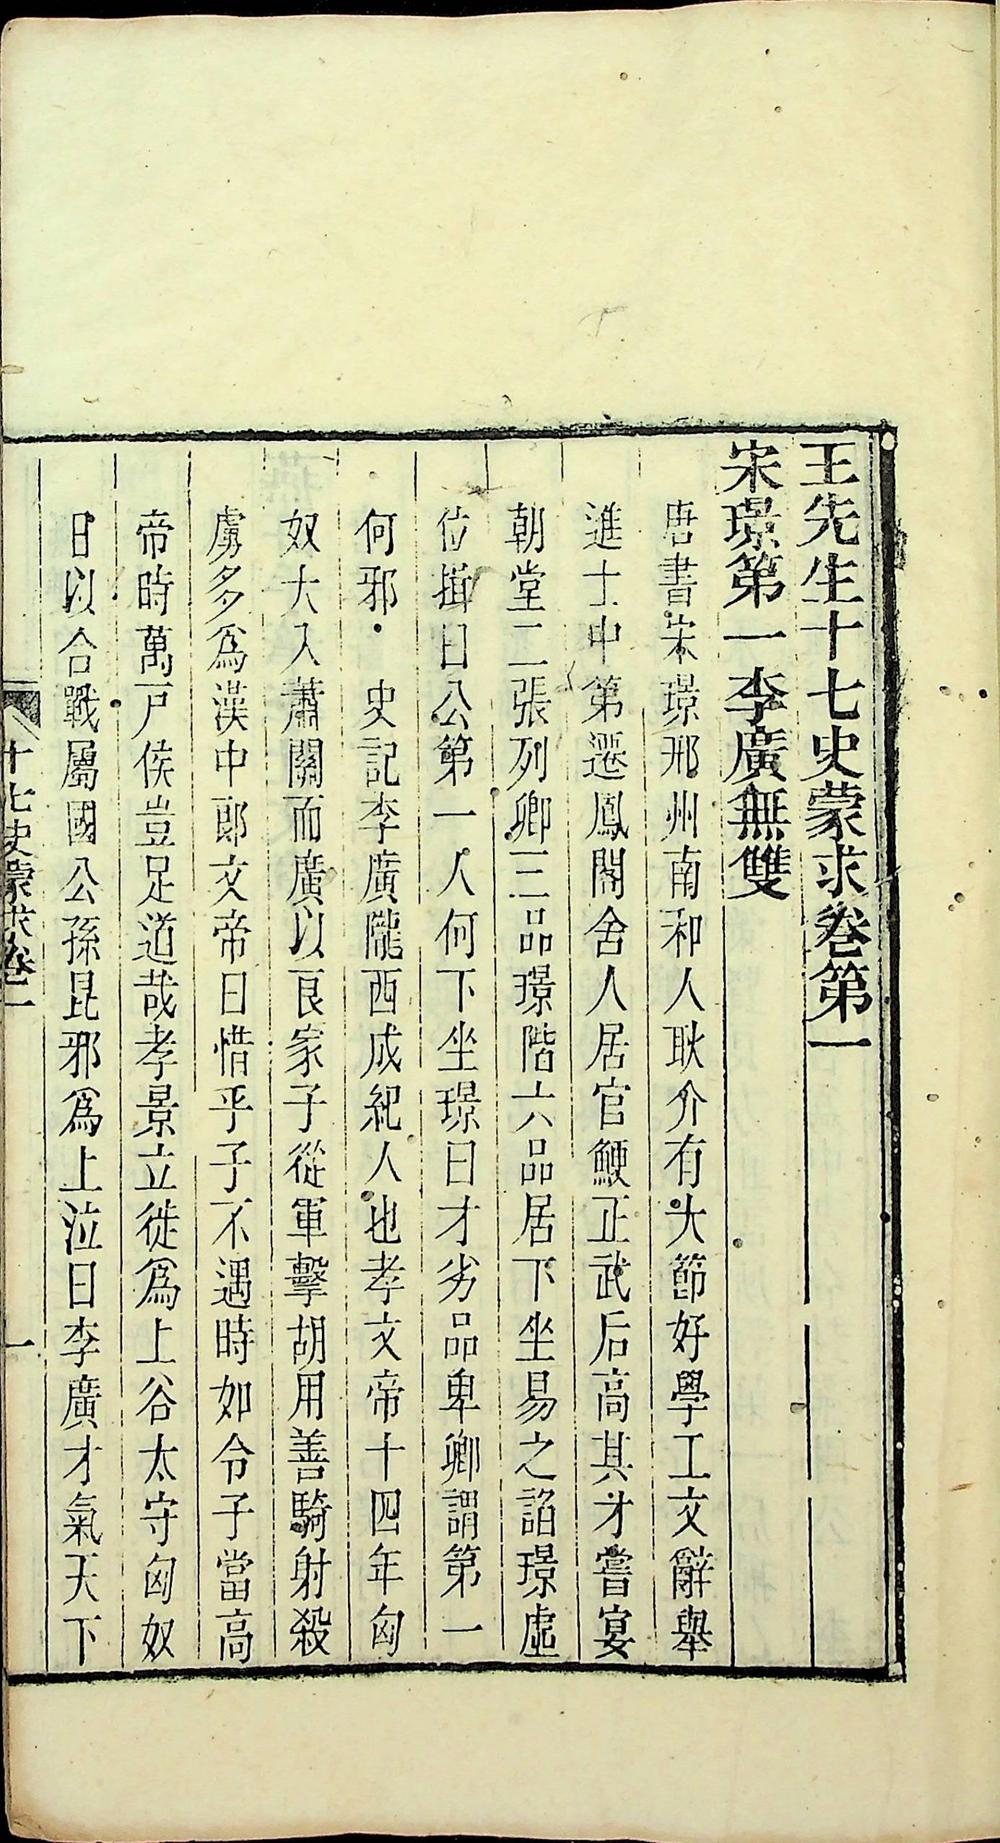 王先生十七史蒙求卷第一
宋璟第一李廣無雙
唐書宋璟邢州南和人耿介有大節好學工文辭舉
進士中第遷鳳閣舍人居官鯁正武后高其才嘗宴
朝堂二張列卿三品璟階六品居下坐易之諂璟虛
位揖曰公第一人何下坐璟曰才劣品卑卿謂第一
何邪 史記李廣隴西成紀人也孝文帝十四年匈
奴大入蕭關而廣以良家子從軍擊胡用善騎射殺
虜多爲漢中郎文帝曰惜乎子不遇時如令子當高
帝時萬戸侯豈足道哉孝景立徙爲上谷太守匈奴
日以合戰屬國公孫昆邪爲上泣曰李廣才氣天下
十七史蒙求卷一
一